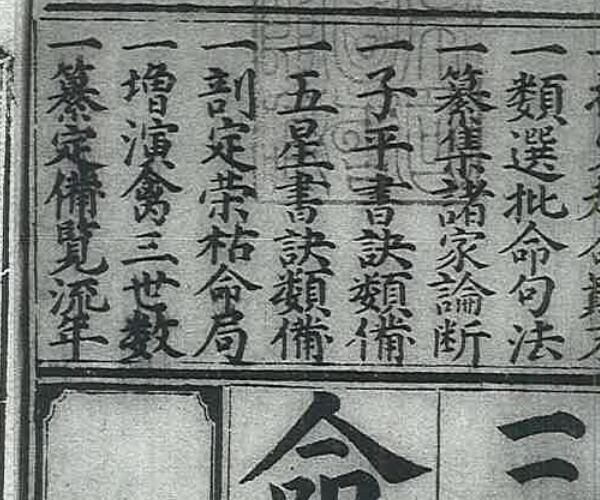 一類選批命句法
一纂集諸家論断
一子平書訣類備
一五星書訣類備
一剖定荣枯命局
一增演禽三世数
一纂定備覽流年
三
命